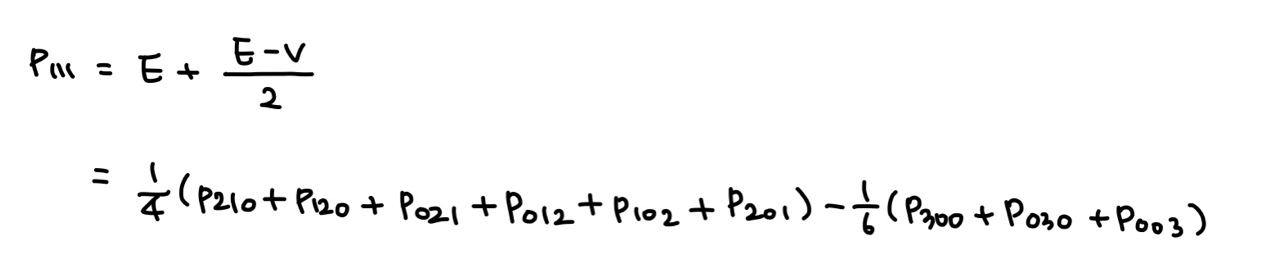 P₁₁₁ = E + (E - V)/2
= 1/4 (P₂₁₀ + P₁₂₀ + P₀₂₁ + P₀₁₂ + P₁₀₂ + P₂₀₁) - 1/6 (P₃₀₀ + P₀₃₀ + P₀₀₃)